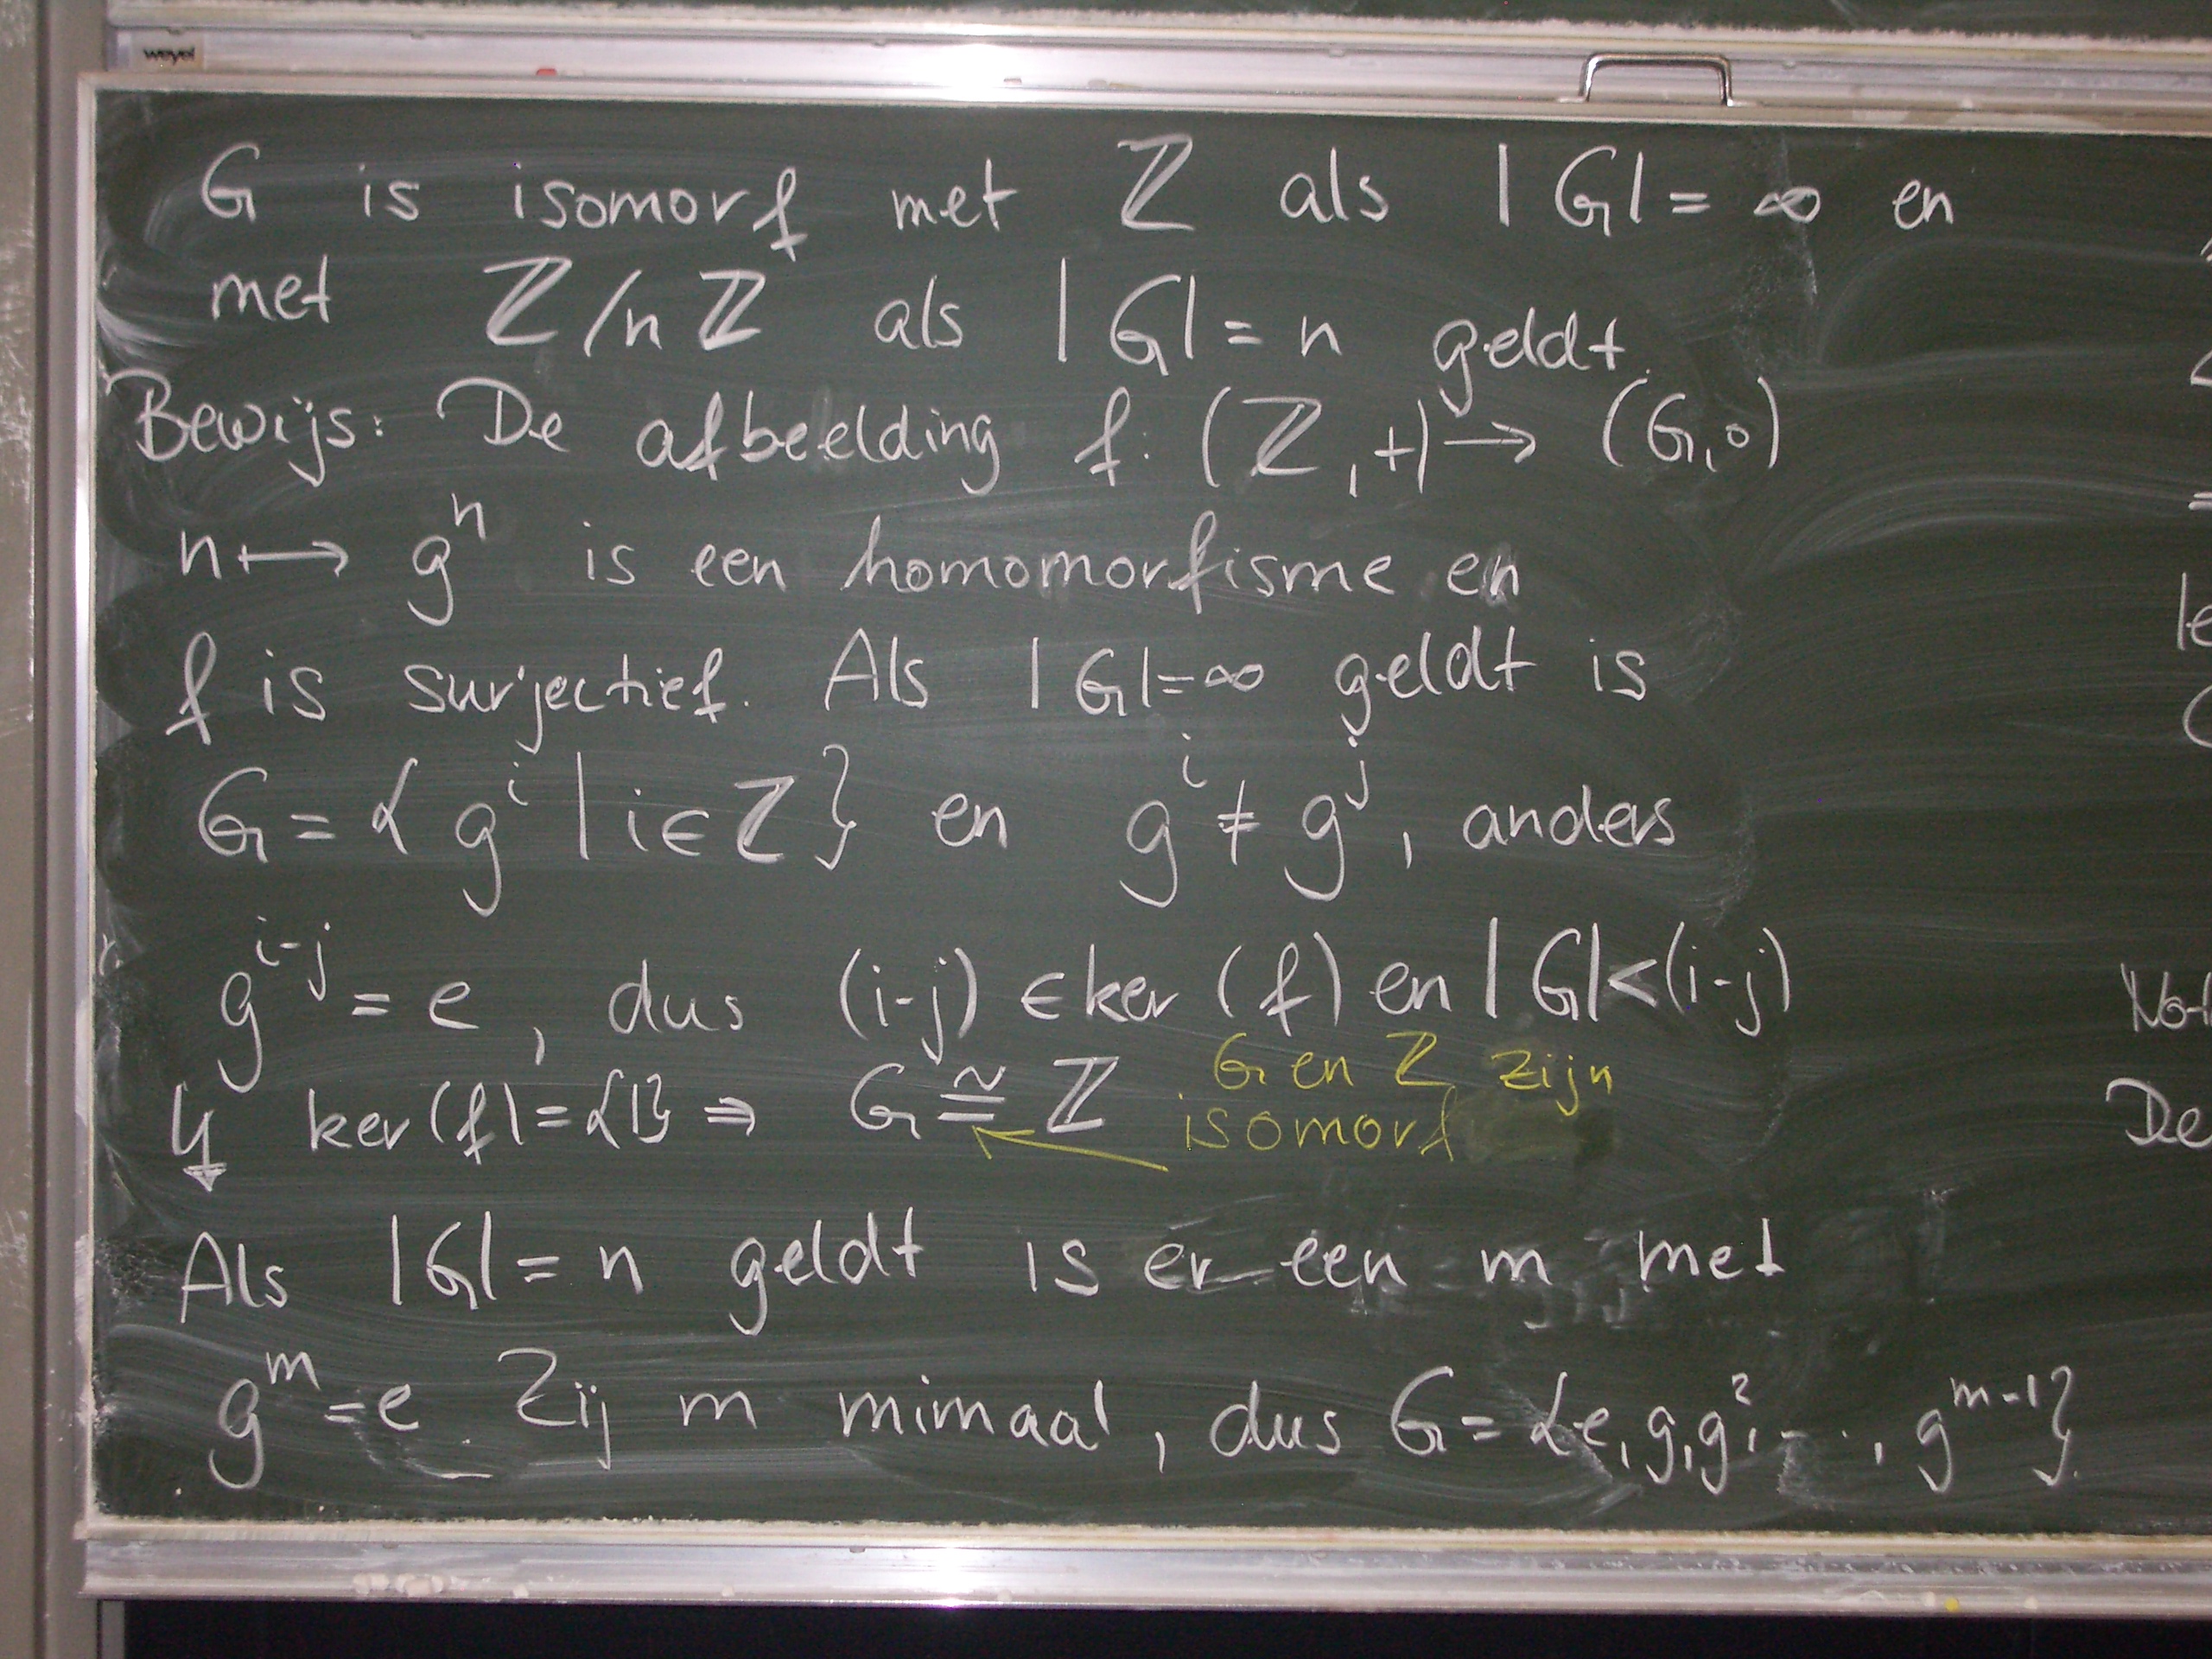 weyel
G is isomorf met ℤ als |G| = ∞ en
met ℤ/nℤ als |G| = n geldt.
Bewijs: De afbeelding f: (ℤ,+) → (G,∘)
n ↦ gⁿ is een homomorfisme en
f is surjectief. Als |G|=∞ geldt is
G = { gⁱ | i∈ℤ } en gⁱ ≠ gʲ, anders
gⁱ⁻ʲ = e, dus (i-j) ∈ ker (f) en |G|<(i-j)
↯ ker(f)={1} ⇒ G ≅ ℤ
G en ℤ zijn
isomorf
Als |G| = n geldt is er een m met
gᵐ = e. Zij m mimaal, dus G = {e,g,g²,..., gᵐ⁻¹}.
De